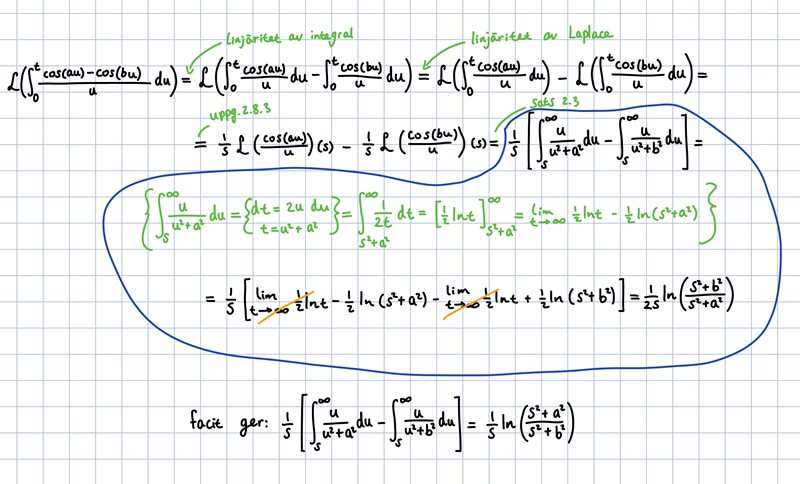 linjäritet av integral linjäritet av Laplace
ℒ(∫₀ᵗ (cos(au)-cos(bu))/u du) = ℒ(∫₀ᵗ cos(au)/u du - ∫₀ᵗ cos(bu)/u du) = ℒ(∫₀ᵗ cos(au)/u du) - ℒ(∫₀ᵗ cos(bu)/u du) =
uppg. 2.8.3 sats 2.3
= 1/s ℒ(cos(au)/u)(s) - 1/s ℒ(cos(bu)/u)(s) = 1/s [∫ₛ^∞ u/(u²+a²) du - ∫ₛ^∞ u/(u²+b²) du] =
{∫ₛ^∞ u/(u²+a²) du = {dt = 2u du, t = u²+a²} = ∫_{s²+a²}^∞ 1/(2t) dt = [1/2 ln t]_{s²+a²}^∞ = lim_{t→∞} 1/2 ln t - 1/2 ln(s²+a²)}
= 1/s [lim_{t→∞} 1/2 ln t - 1/2 ln(s²+a²) - lim_{t→∞} 1/2 ln t + 1/2 ln(s²+b²)] = 1/(2s) ln((s²+b²)/(s²+a²))
facit ger: 1/s [∫ₛ^∞ u/(u²+a²) du - ∫ₛ^∞ u/(u²+b²) du] = 1/s ln((s²+a²)/(s²+b²))